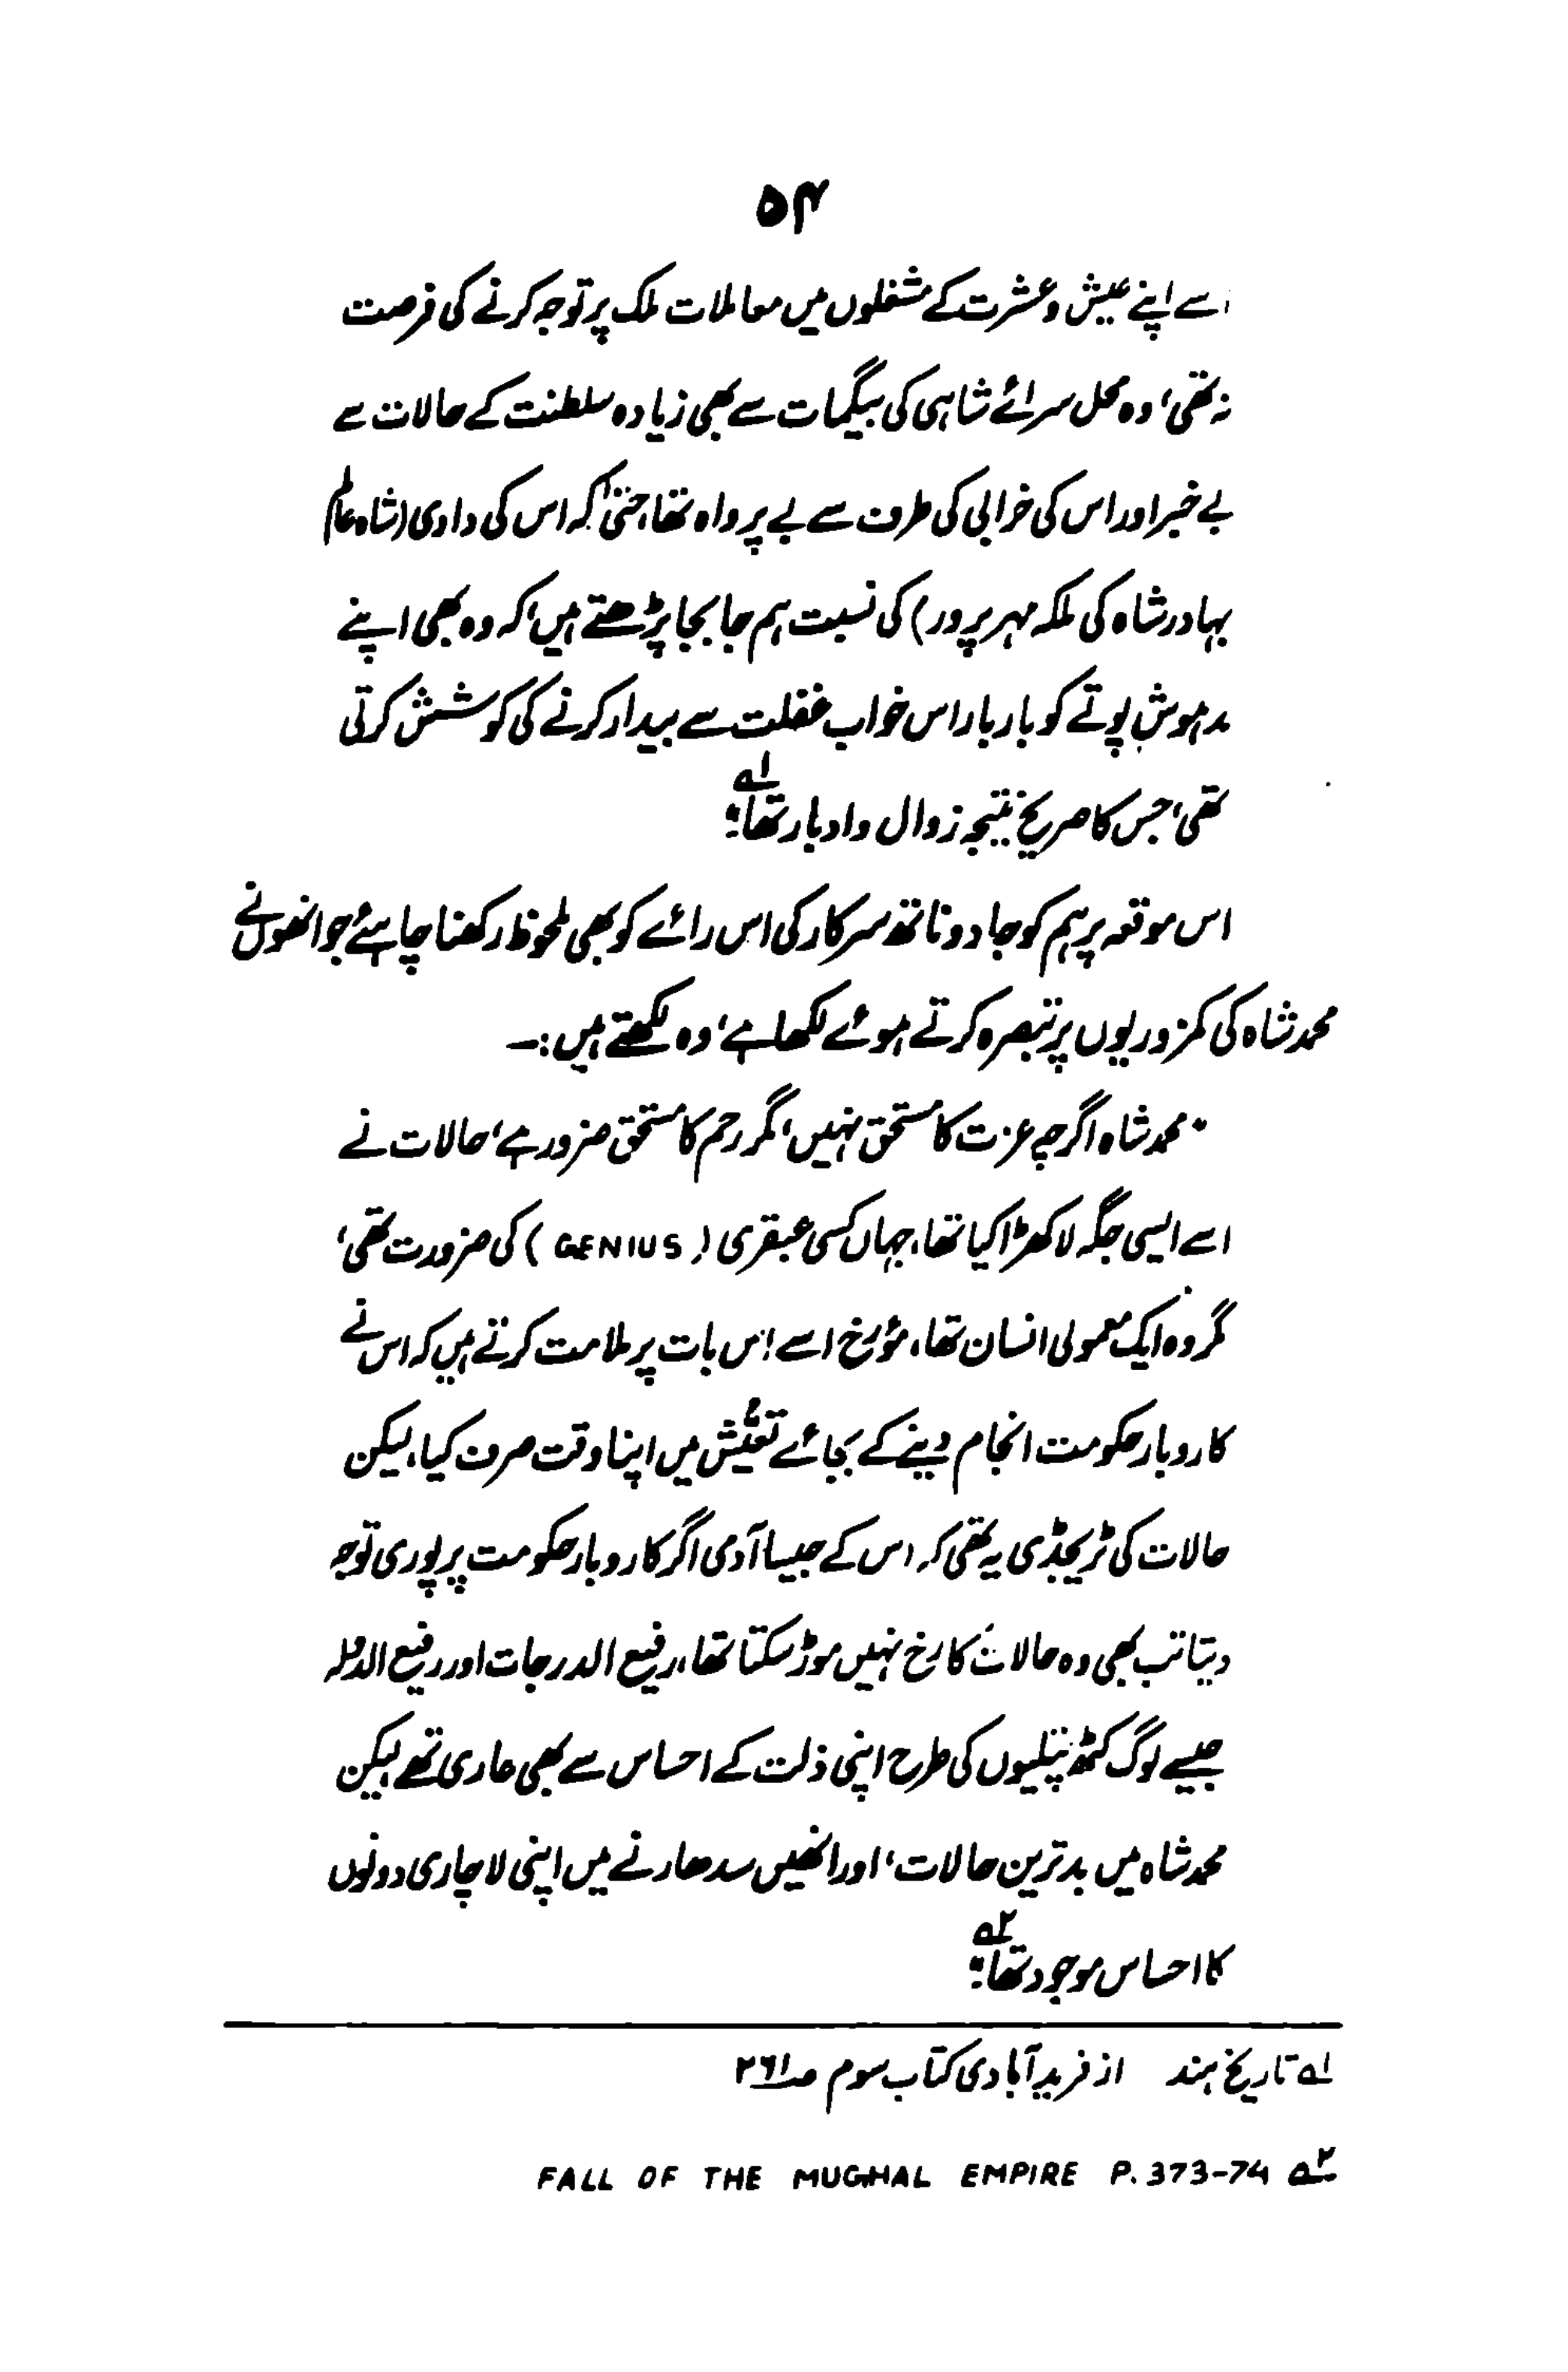 ۵۴
اسے اپنے عیش و عشرت کے مشغلوں میں معاملات ملک پر توجہ کرنے کی فرصت
نہ تھی، وہ محل سرائے شاہی کی بیگمات سے بھی زیادہ سلطنت کے حالات سے
بے خبر اور اس کی خرابی کی طرف سے بے پرواہ تھا، حتیٰ کہ اس کی دادی (شاہ عالم
بہادر شاہ کی ملکہ مہر پرور) کی نسبت ہم جا بجا پڑھتے ہیں، کہ وہ بھی اپنے
مدہوش پوتے کو بار بار اس خواب غفلت سے بیدار کرنے کی کوشش کرتی
تھی، جس کا صریح نتیجہ زوال و ادبار تھا؛ ۱؎
اس موقعہ پر ہم کو جادو ناتھ سرکار کی اس رائے کو بھی ملحوظ رکھنا چاہیئے جو انھوں نے
محمد شاہ کی کمزوریوں پر تبصرہ کرتے ہوئے لکھا ہے، وہ لکھتے ہیں:۔
"محمد شاہ اگرچہ عزت کا مستحق نہیں، مگر رحم کا مستحق ضرور ہے، حالات نے
اسے ایسی جگہ لا کھڑا کیا تھا، جہاں کسی عبقری (GENIUS) کی ضرورت تھی،
مگر وہ ایک معمولی انسان تھا، مؤرخ اسے اس بات پر ملامت کرتے ہیں کہ اس نے
کاروبار حکومت انجام دینے کے بجائے تعیُّش میں اپنا وقت صرف کیا، لیکن
حالات کی ٹریجڈی یہ تھی کہ اس کے جیسا آدمی اگر کاروبار حکومت پر پوری توجہ
دیتا تب بھی وہ حالات کا رخ نہیں موڑ سکتا تھا، رفیع الدرجات اور رفیع الدولہ
جیسے لوگ کٹھ پتلیوں کی طرح اپنی ذلت کے احساس سے بھی عاری تھے، لیکن
محمد شاہ میں بدترین حالات، اور انھیں سدھارنے میں اپنی لاچاری دونوں
کا احساس موجود تھا؛ ۲؎
۱؎ تاریخ ہند از فرید آبادی کتاب سوم ص۲۶۱
۲؎ FALL OF THE MUGHAL EMPIRE P. 373-74